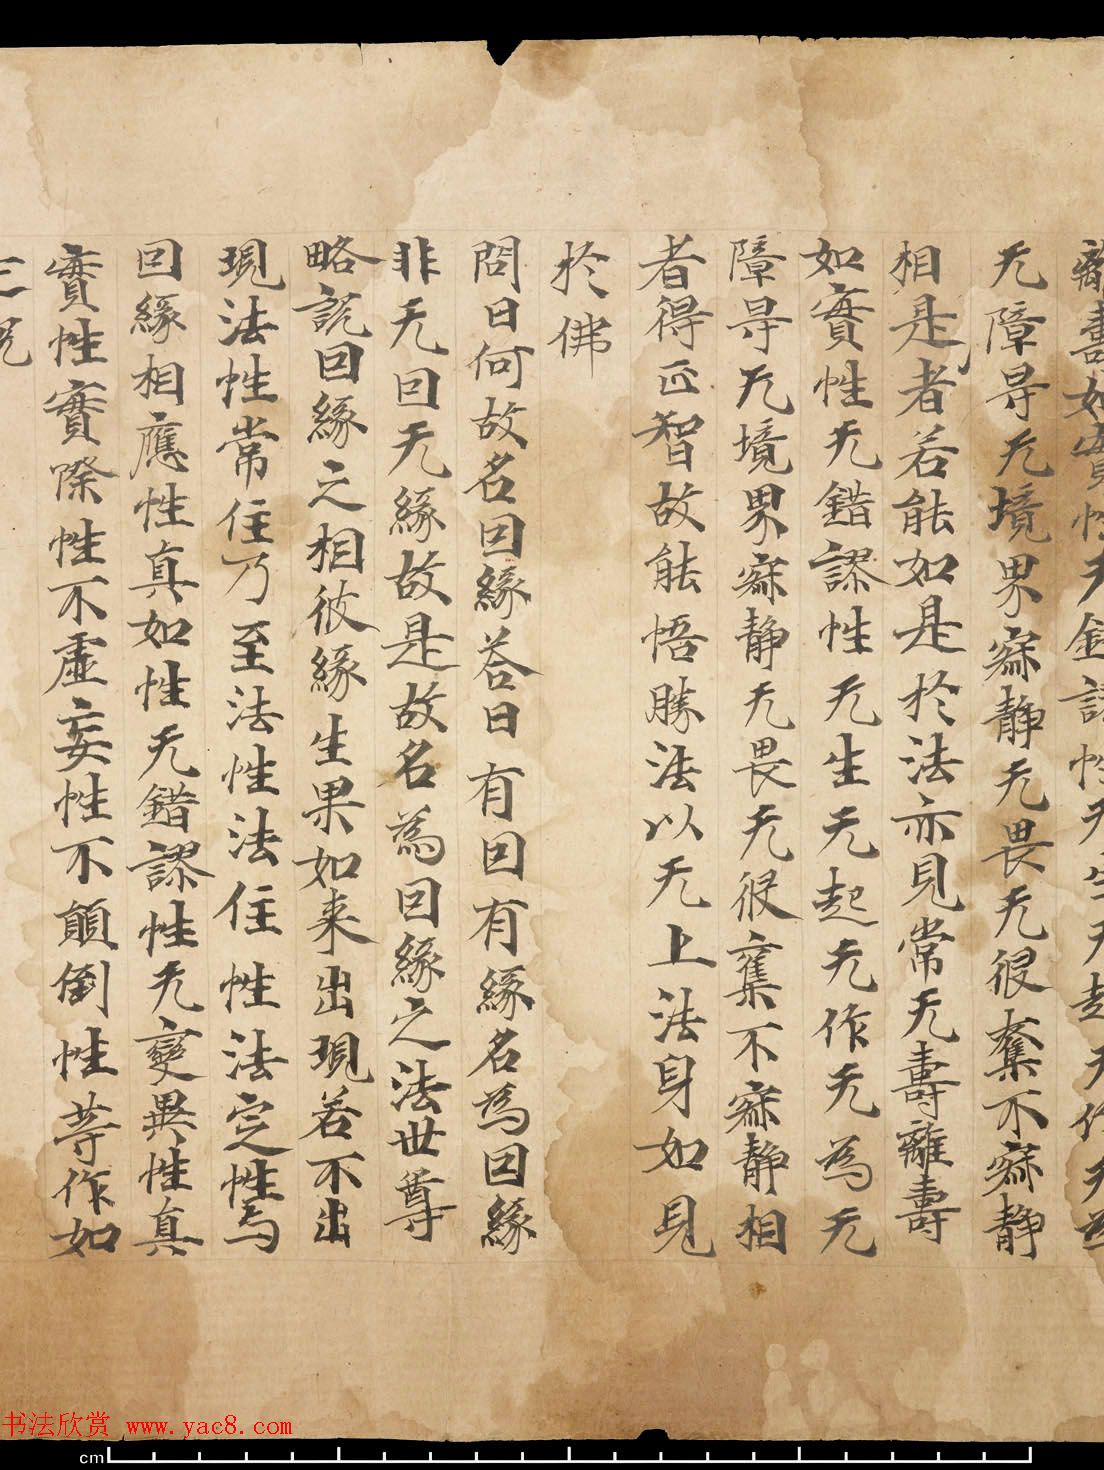 離壽如實性无錯謬性无生无起无作无為
无障㝵无境界寂静无畏无侵奪不寂静
相是者若能如是於法亦見常无壽離壽
如實性无錯謬性无生无起无作无為无
障㝵无境界寂静无畏无侵奪不寂静相
者得正智故能悟勝法以无上法身如見
於佛
問曰何故名因緣荅曰有因有緣名為因緣
非无因无緣故是故名為因緣之法世尊
略說因緣之相彼緣生果如来出現若不出
現法性常住乃至法性法住性法定性与
因緣相應性真如性无錯謬性无變異性真
實性實際性不虛妄性不顛倒性等作如
书法欣赏 www.yac8.com
cm